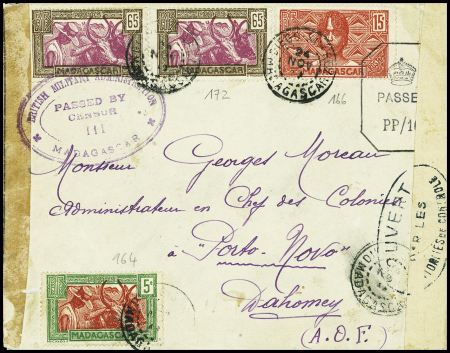 65
MADAGASCAR
65
MADAGASCAR
15c
MADAGASCAR
24
NOV
MADAGASCAR
172
166
BRITISH MILITARY ADMINISTRATION
PASSED BY
CENSOR
111
MADAGASCAR
PASSE
PP/10
Monsieur Georges Moreau
Administrateur en Chef des Colonies
à "Porto-Novo"
Dahomey
(A.O.F.)
164
5c
MADAGASCAR
OUVERT
PAR LES
AUTORITES DE CONTROLE
MADAGASCAR